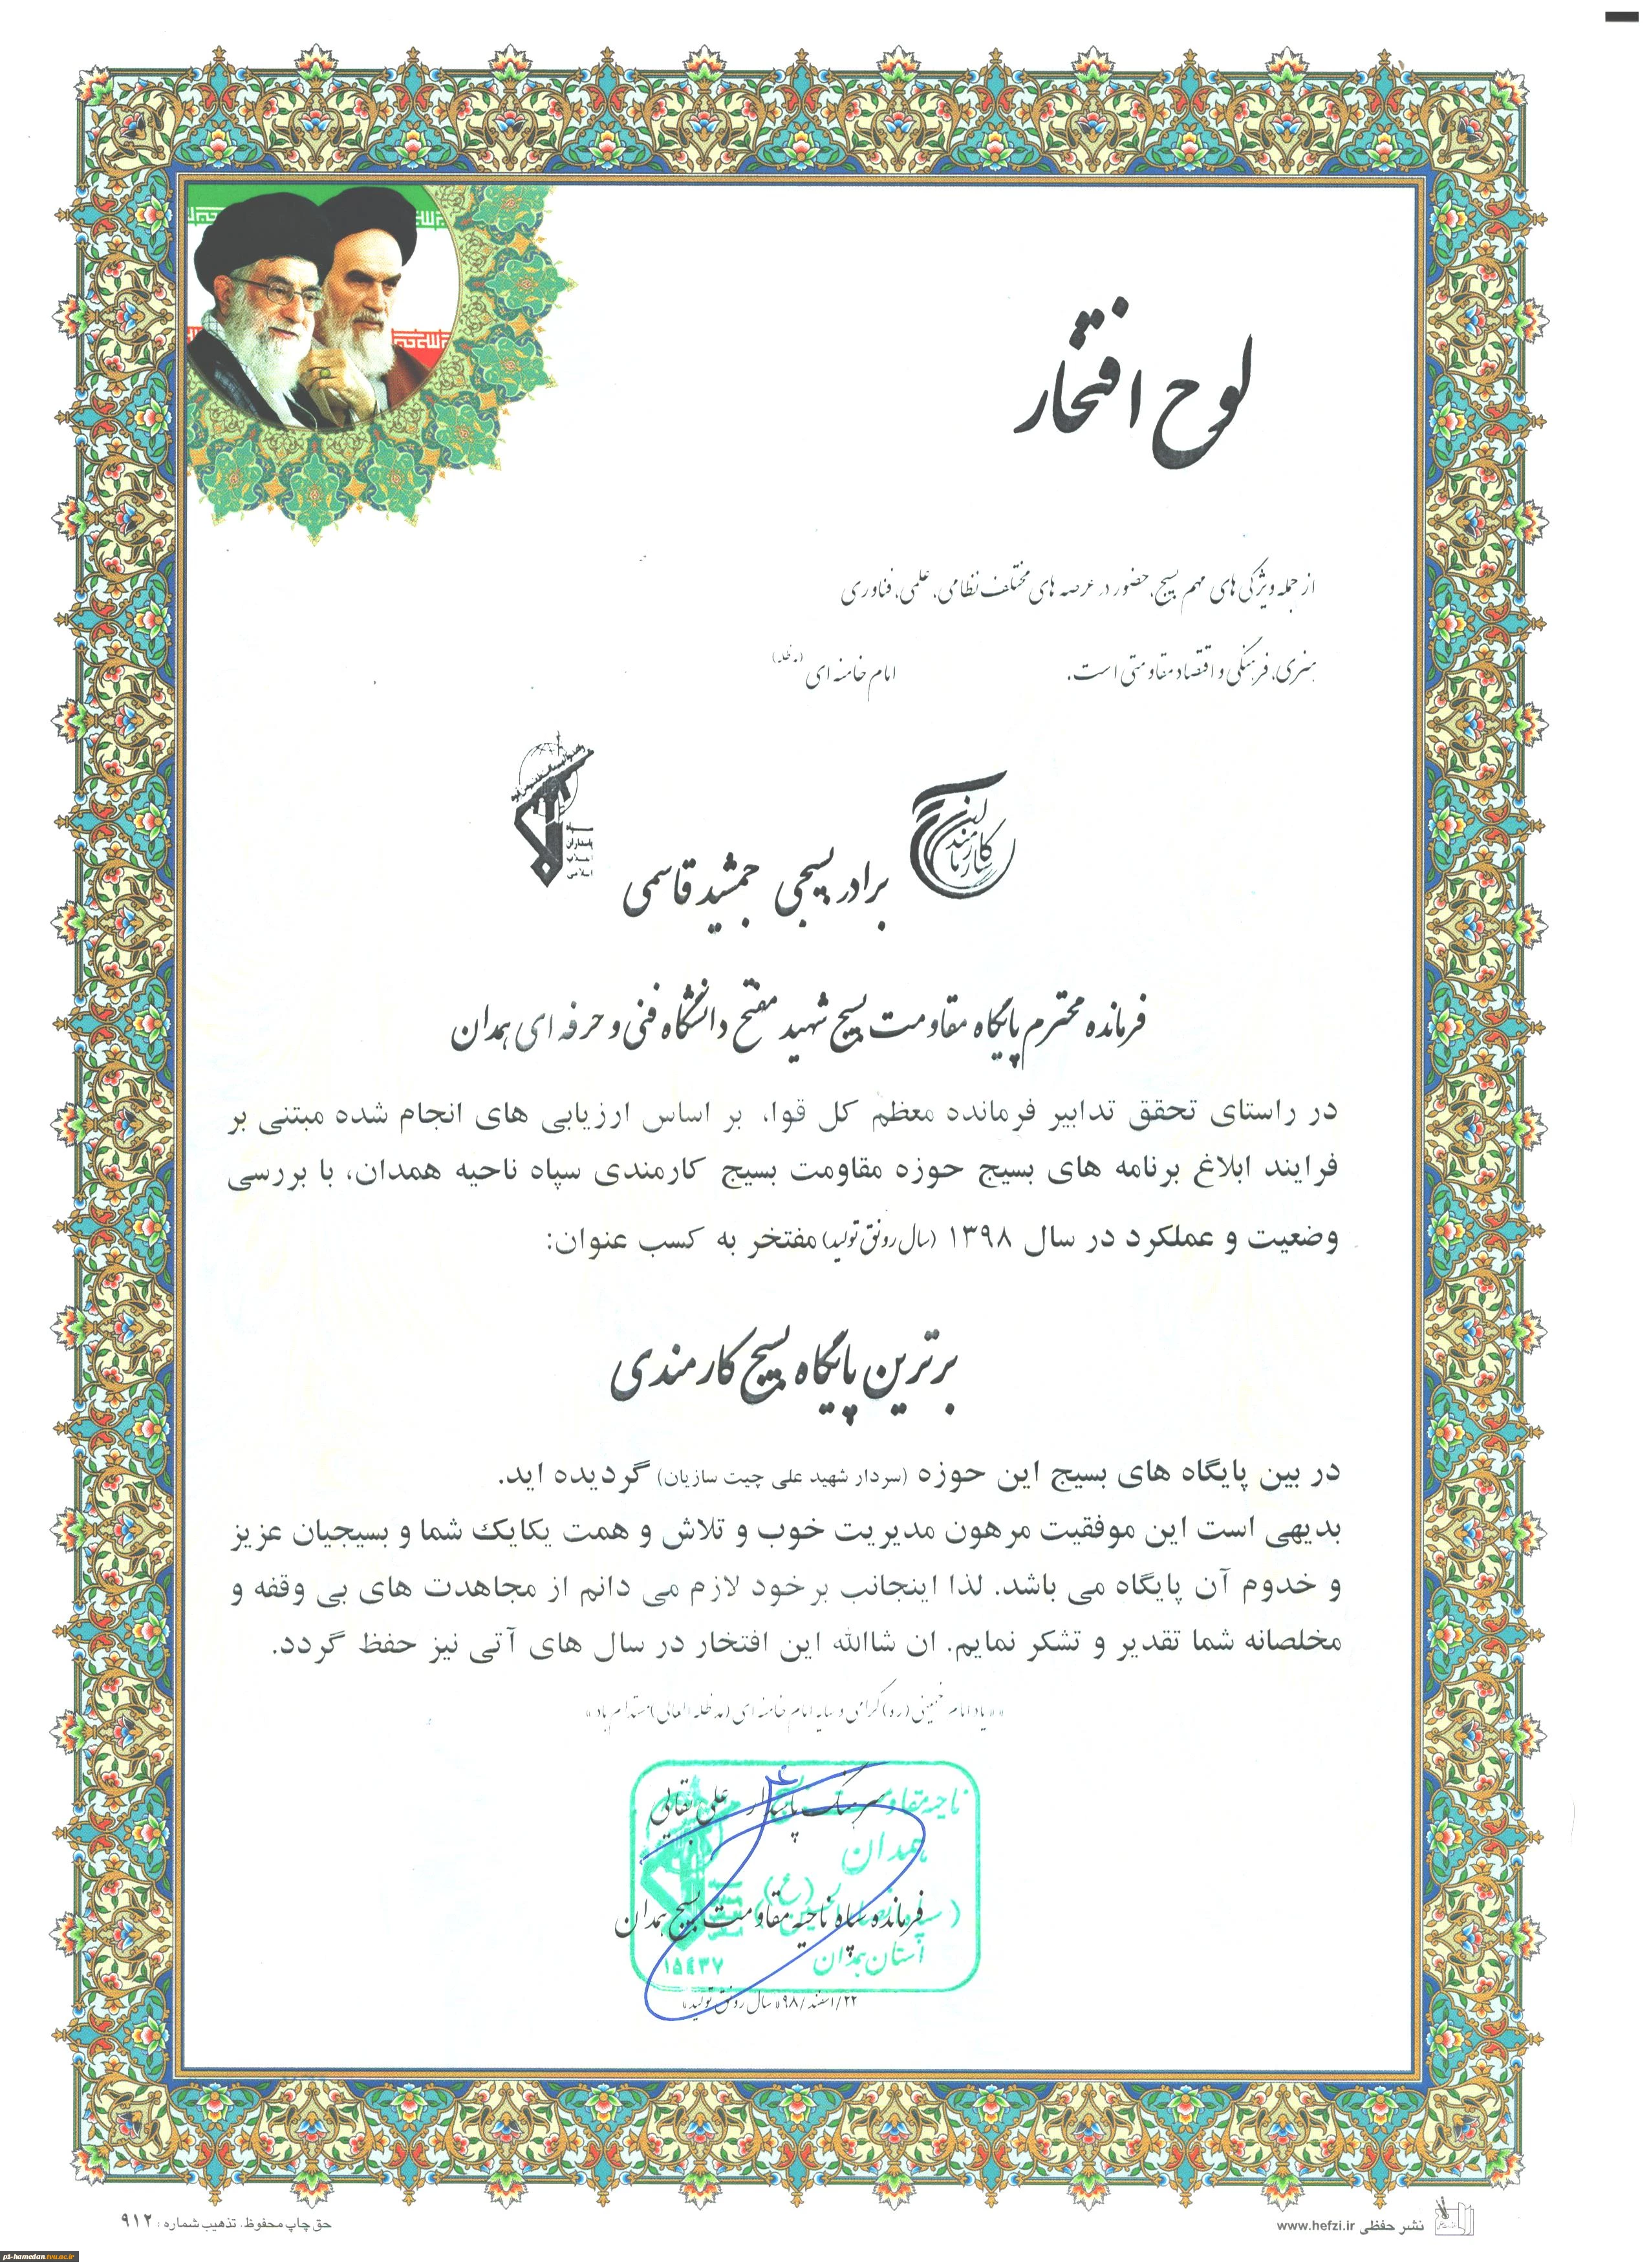 لوح افتخار
از جمله ویژگی های مهم بسیج، حضور در عرصه های مختلف نظامی، علمی، فناوری
هنری، فرهنگی و اقتصاد مقاومتی است. امام خامنه ای (مدظله)
کارمندان
سپاه
پاسداران
انقلاب
اسلامی
برادر بسیجی جمشید قاسمی
فرمانده محترم پایگاه مقاومت بسیج شهید مفتح دانشگاه فنی و حرفه ای همدان
در راستای تحقق تدابیر فرمانده معظم کل قوا، بر اساس ارزیابی های انجام شده مبتنی بر
فرایند ابلاغ برنامه های بسیج حوزه مقاومت بسیج کارمندی سپاه ناحیه همدان، با بررسی
وضعیت و عملکرد در سال ۱۳۹۸ (سال رونق تولید) مفتخر به کسب عنوان:
برترین پایگاه بسیج کارمندی
در بین پایگاه های بسیج این حوزه (سردار شهید علی چیت سازیان) گردیده اید.
بدیهی است این موفقیت مرهون مدیریت خوب و تلاش و همت یکایک شما و بسیجیان عزیز
و خدوم آن پایگاه می باشد. لذا اینجانب برخود لازم می دانم از مجاهدت های بی وقفه و
مخلصانه شما تقدیر و تشکر نمایم. ان شاالله این افتخار در سال های آتی نیز حفظ گردد.
«یاد امام خمینی (ره) گرامی و سایه امام خامنه ای (مدظله العالی) مستدام باد»
ناحیه مقاومت
سرهنگ پاسدار علی بقالی
همدان
فرمانده سپاه ناحیه مقاومت بسیج همدان
استان همدان
۱۵٤۳۷
۲۲/اسفند/۹۸ «سال رونق تولید»
نشر حفظی www.hefzi.ir
حق چاپ محفوظ. تذهیب شماره: ۹۱۲
p1-hamedan.tvu.ac.ir